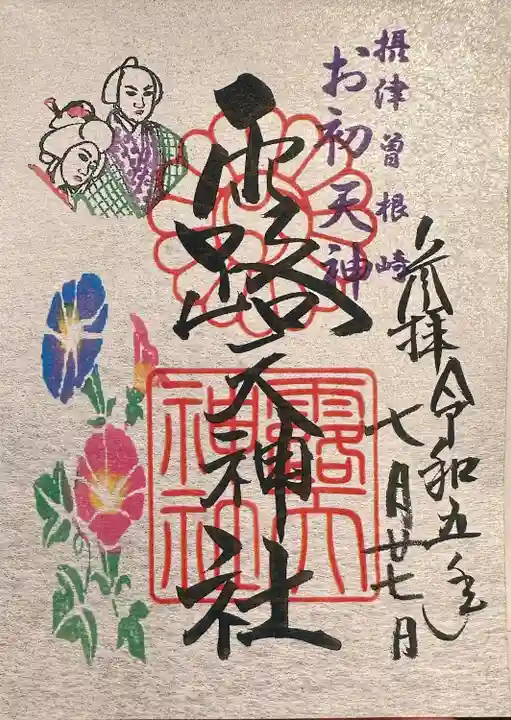 摂津曽根崎
お初天神
参拝 令和五年
七月廿七日
露天神社
露天
神社